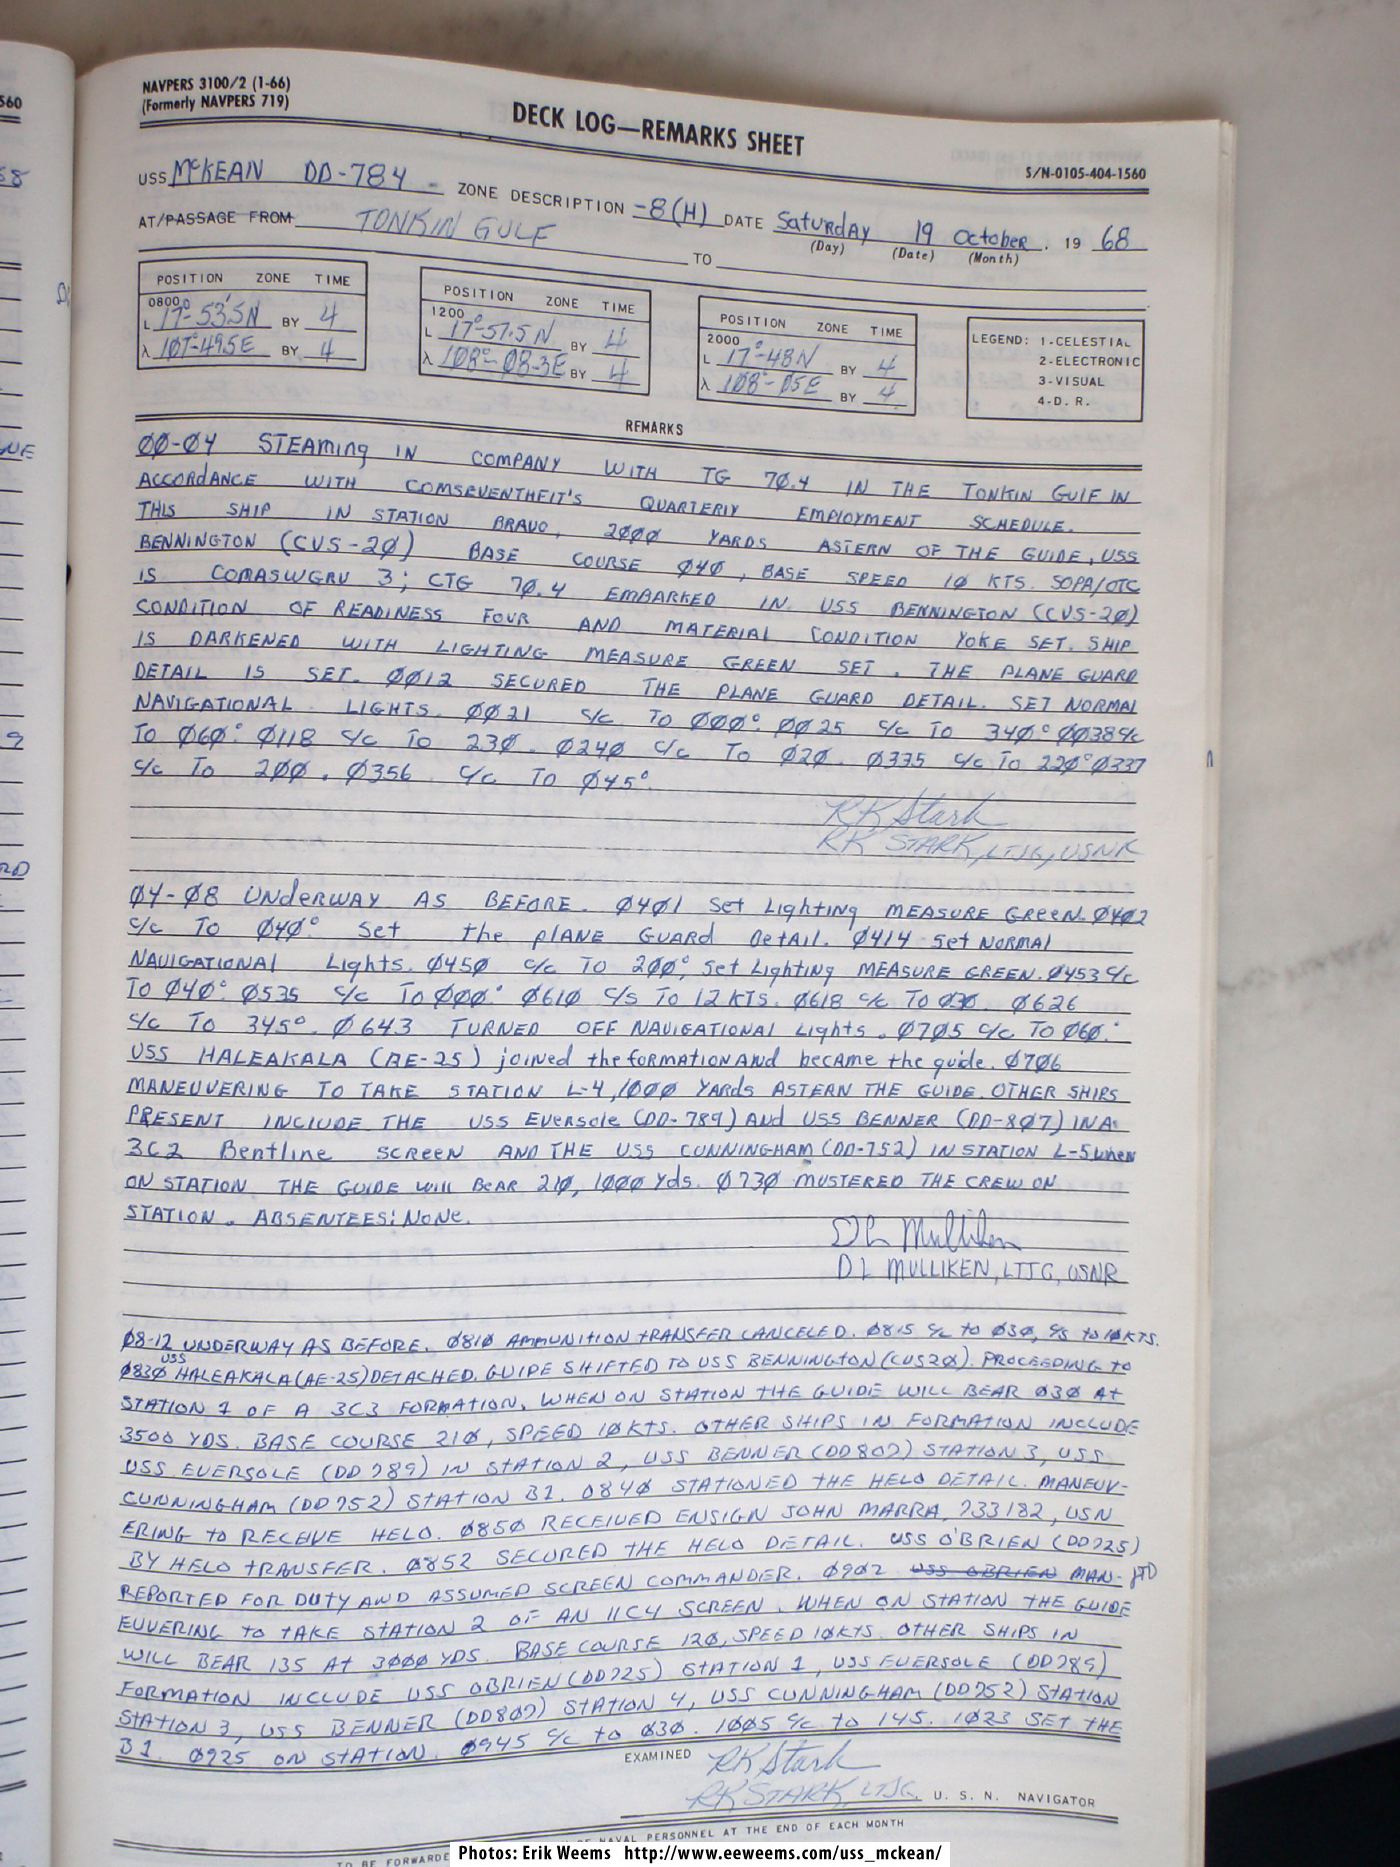 560
NAVPERS 3100/2 (1-66)
(Formerly NAVPERS 719)
DECK LOG—REMARKS SHEET
S/N-0105-404-1560
USS McKEAN DD-784 ZONE DESCRIPTION -8(H) DATE Saturday 19 October, 19 68
(Day) (Date) (Month)
AT/PASSAGE FROM TONKIN GULF TO
POSITION ZONE TIME
0800
L 17°-53.5N BY 4
λ 107°-49.5E BY 4
POSITION ZONE TIME
1200
L 17°-57.5N BY 4
λ 108°-08.3E BY 4
POSITION ZONE TIME
2000
L 17°-48N BY 4
λ 108°-05E BY 4
LEGEND: 1-CELESTIAL
2-ELECTRONIC
3-VISUAL
4-D. R.
REMARKS
00-04 STEAMING IN COMPANY WITH TG 70.4 IN THE TONKIN GULF IN
ACCORDANCE WITH COMSEVENTHFLT'S QUARTERLY EMPLOYMENT SCHEDULE.
THIS SHIP IN STATION BRAVO, 2000 YARDS ASTERN OF THE GUIDE, USS
BENNINGTON (CVS-20) BASE COURSE 040, BASE SPEED 10 KTS. SOPA/OTC
IS COMASWGRU 3; CTG 70.4 EMBARKED IN USS BENNINGTON (CVS-20)
CONDITION OF READINESS FOUR AND MATERIAL CONDITION YOKE SET. SHIP
IS DARKENED WITH LIGHTING MEASURE GREEN SET. THE PLANE GUARD
DETAIL IS SET. 0012 SECURED THE PLANE GUARD DETAIL. SET NORMAL
NAVIGATIONAL LIGHTS. 0021 c/c TO 000°. 0025 c/c TO 340° 0038 c/c
TO 060°. 0118 c/c TO 230. 0240 c/c TO 020. 0335 c/c TO 220° 0337
c/c TO 200. 0356 c/c TO 045°.
RK Stark
RK STARK, LTJG, USNR
04-08 UNDERWAY AS BEFORE. 0401 Set Lighting MEASURE GREEN. 0402
c/c TO 040°. Set the PLANE GUARD Detail. 0414 Set NORMAL
NAVIGATIONAL Lights. 0450 c/c TO 200°, Set Lighting MEASURE GREEN. 0453 c/c
TO 040°. 0535 c/c TO 000°. 0610 c/s TO 12 KTS. 0618 c/c TO 030. 0626
c/c TO 345°. 0643 TURNED OFF NAVIGATIONAL Lights. 0705 c/c TO 060°.
USS HALEAKALA (AE-25) joined the formation and became the guide. 0706
MANEUVERING TO TAKE STATION L-4, 1000 YARDS ASTERN THE GUIDE. OTHER SHIPS
PRESENT INCLUDE THE USS Eversole (DD-789) And USS BENNER (DD-807) IN A
3C2 Bentline SCREEN AND THE USS CUNNINGHAM (DD-752) IN STATION L-5 when
ON STATION THE GUIDE will BEAR 210, 1000 Yds. 0730 MUSTERED THE CREW ON
STATION. ABSENTEES: NONE.
D L Mulliken
D L MULLIKEN, LTJG, USNR
08-12 UNDERWAY AS BEFORE. 0810 AMMUNITION TRANSFER CANCELED. 0815 c/c to 030, c/s to 10 KTS.
0830 USS HALEAKALA (AE-25) DETACHED. GUIDE SHIFTED TO USS BENNINGTON (CVS20). PROCEEDING TO
STATION 1 OF A 3C3 FORMATION, WHEN ON STATION THE GUIDE WILL BEAR 030 At
3500 YDS. BASE COURSE 210, SPEED 10KTS. OTHER SHIPS IN FORMATION INCLUDE
USS EVERSOLE (DD 789) IN STATION 2, USS BENNER (DD 807) STATION 3, USS
CUNNINGHAM (DD 752) STATION B1. 0840 STATIONED THE HELO DETAIL. MANEUV-
ERING to RECEIVE HELO. 0850 RECEIVED ENSIGN JOHN MARRA, 733182, USN
BY HELO TRANSFER. 0852 SECURED THE HELO DETAIL. USS O'BRIEN (DD725)
REPORTED FOR DUTY AND ASSUMED SCREEN COMMANDER. 0902 USS OBRIEN MAN-
EUVERING to TAKE STATION 2 OF AN 11C4 SCREEN. WHEN ON STATION THE GUIDE
WILL BEAR 135 At 3000 YDS. BASE COURSE 120, SPEED 10KTS. OTHER SHIPS IN
FORMATION INCLUDE USS OBRIEN (DD725) STATION 1, USS EVERSOLE (DD789)
STATION 3, USS BENNER (DD807) STATION 4, USS CUNNINGHAM (DD752) STATION
B1. 0925 ON STATION. 0945 c/c to 030. 1005 c/c to 145. 1023 SET THE
EXAMINED RK Stark
RK STARK, LTJG, U. S. N. NAVIGATOR
TO BE FORWARDE
NAVAL PERSONNEL AT THE END OF EACH MONTH
Photos: Erik Weems http://www.eeweems.com/uss_mckean/